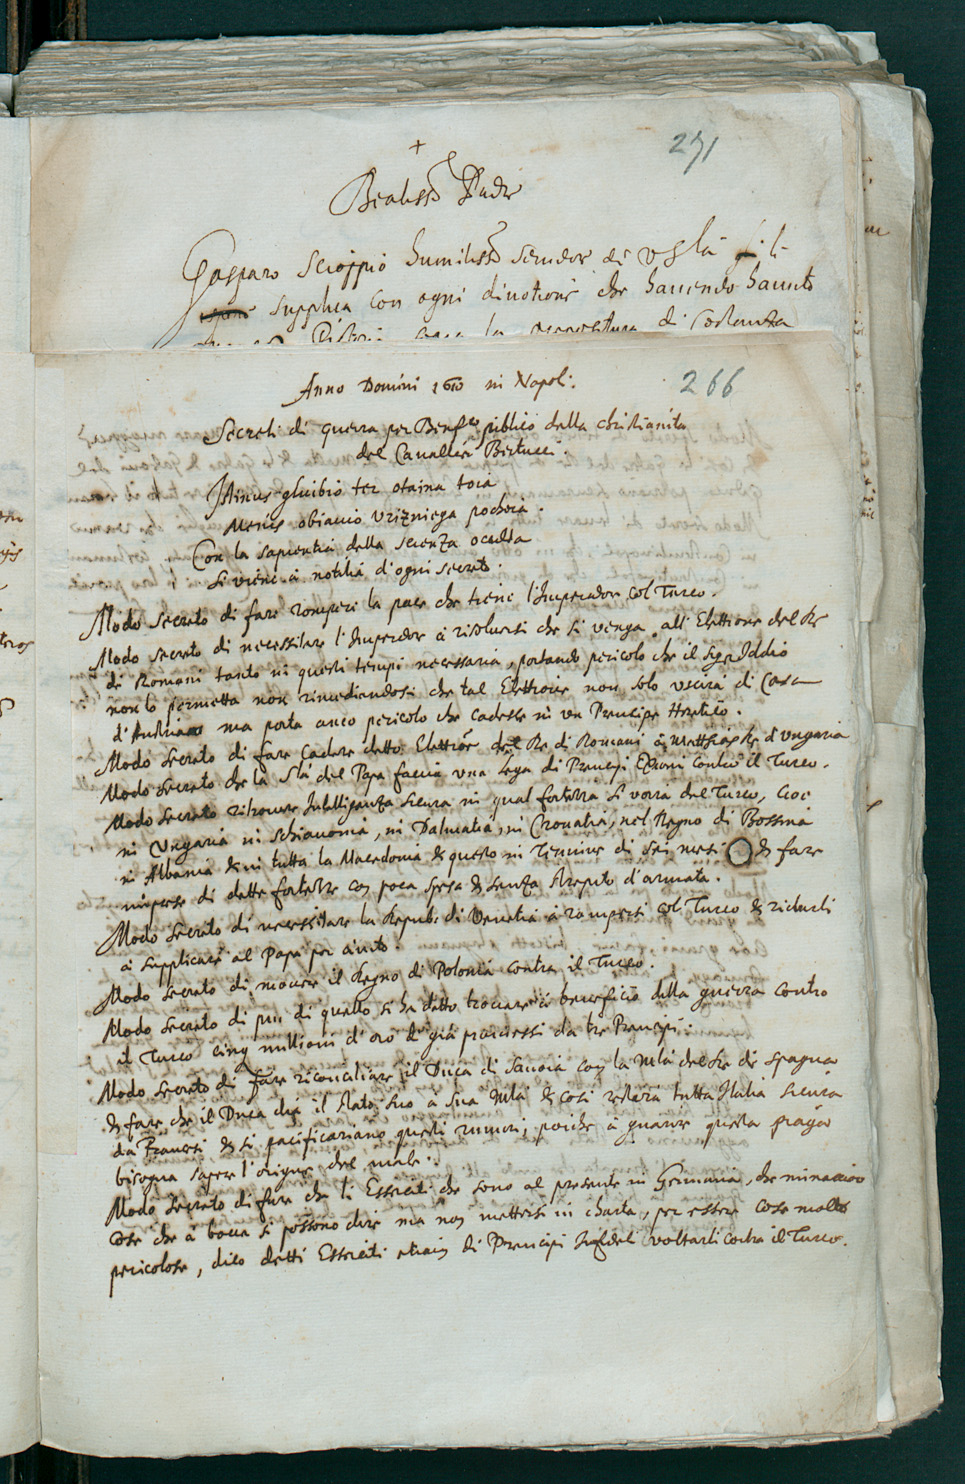 271
+
Beatiss.o Padre
Gasparo Scioppio humiliss.o seruidor di V. S.tà gli
supplica con ogni diuotione che hauendo hauuto
la di Costanza
266
Anno Domini 1610 in Napoli.
Secreti di guerra per Benef.o publico della christianita
del Caualliere Bertucci.
Con la sapientia della scienza oculta
si viene à notitia d'ogni secreto.
Modo secreto di fare rompere la pace che tiene l'Imperador col Turco.
Modo secreto di necessitare l'Imperador à risoluersi che si venga all'Elettione del Re
di Romani tanto in questi tempi necessaria, portando pericolo che il Sig.r Iddio
non lo permetta non rimediandosi che tal Elettione non solo uscirà di Casa
d'Austria ma porta anco pericolo che cadesse in un Prencipe Heretico.
Modo secreto di fare cadere detta Elettione del Re di Romani à Matthias Re d'Ungaria
Modo secreto che la S.tà del Papa faccia una lega di Prencipi contro il Turco.
Modo secreto ritrouare Intelligenza sicura in qual fortezza si vorrà del Turco, cioe
in Ungaria in Schiauonia, in Dalmatia, in Crouatia, nel Regno di Bossina
in Albania & in tutta la Macedonia & questo in termine di sei mesi & fare
imprese di dette fortezze con poca spesa & senza strepito d'armata.
Modo secreto di necessitare la Repub. di Venetia à rompersi col Turco & ridurli
à supplicare al Papa per aiuto.
Modo secreto di mouere il Regno di Polonia contra il Turco.
Modo secreto di piu di quello si ha detto trouare à beneficio della guerra contro
il Turco cinq millioni d'oro di già promessi da tre Prencipi.
Modo secreto di fare riconciliare il Duca di Sauoia con la M.tà del Re di Spagna
& fare che il Duca dia il stato suo à sua M.tà & cosi restarà tutta Italia sicura
da Francesi & si pacificariano questi rumori, poiche à guarire questa piaga
bisogna sapere l'origine del male.
Modo secreto di fare che li Esserciti che sono al presente in Germania, che minacciano
cose che à bocca si possono dire ma non mettersi in charta, per essere cose molto
pericolose, dico detti Esserciti etiam di Prencipi voltarli contra il Turco.